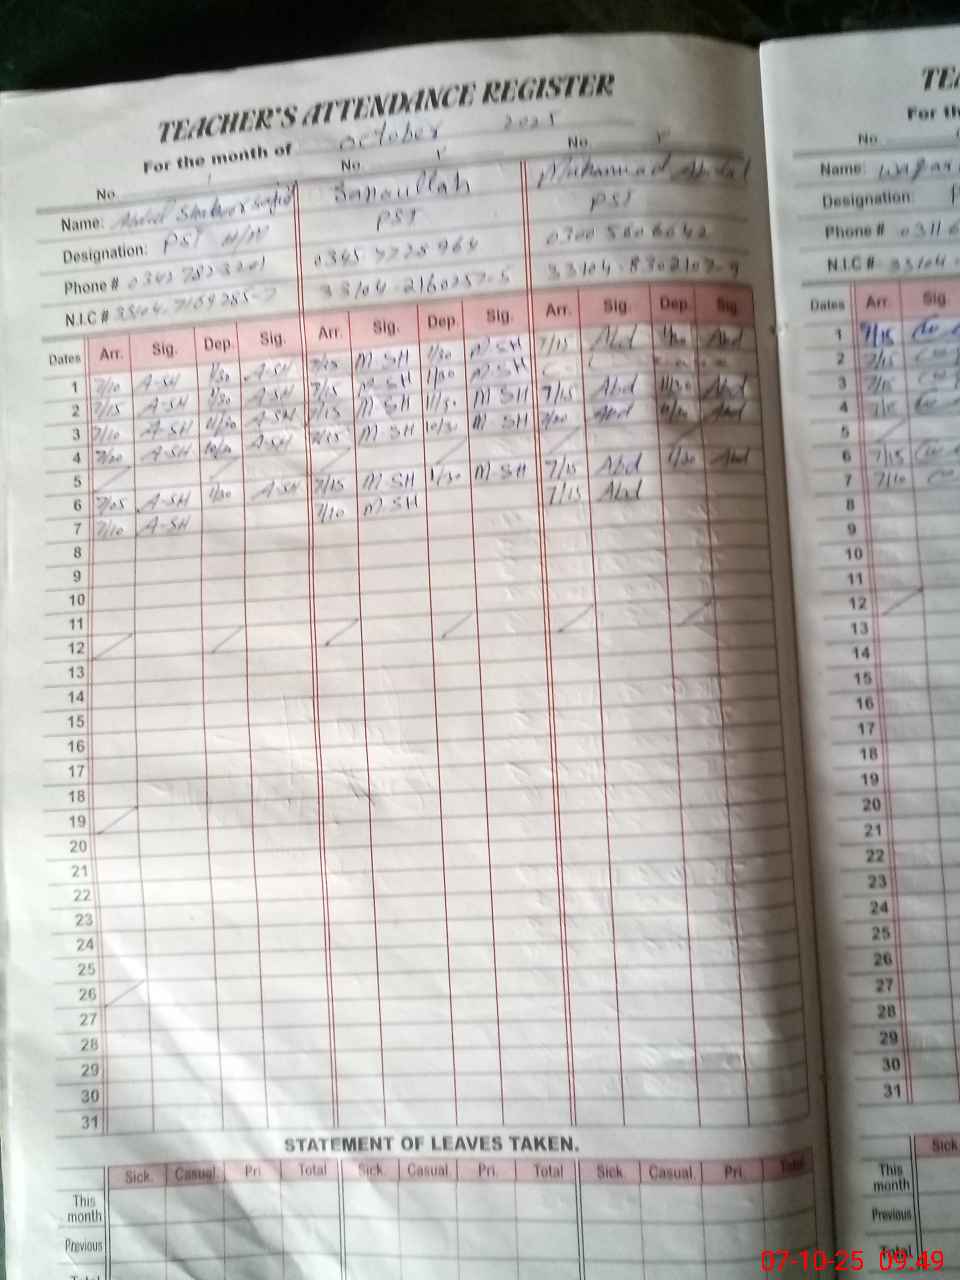 TEACHER'S ATTENDANCE REGISTER
For the month of October 2025
No. 1 No. No.
Name: Sanaullah Muhammad
Designation: PST H/M PST PST
Phone # 0345 7728964 0300 5806642
N.I.C # 33104-2160257-5 33104-8302107-9
Dates Arr. Sig. Dep. Sig. Arr. Sig. Dep. Sig. Arr. Sig. Dep. Sig.
1 7/10 A-SH 1/30 A-SH 7/15 M SH 1/30 M SH 7/15 Abd 1/30 Abd
2 7/15 A-SH 1/30 A-SH 7/15 M SH 1/30 M SH
3 7/10 A-SH 11/30 A-SH 7/15 M SH 11/30 M SH 7/15 Abd 11/30 Abd
4 7/20 A-SH 10/30 A-SH 7/15 M SH 10/30 M SH 7/20 Abd Abd
5
6 7/05 A-SH 1/30 A-SH 7/15 M SH 1/30 M SH 7/15 Abd 1/30 Abd
7 7/10 A-SH 7/10 M SH 7/15 Abd
8
9
10
11
12
13
14
15
16
17
18
19
20
21
22
23
24
25
26
27
28
29
30
31
STATEMENT OF LEAVES TAKEN.
Sick. Casual. Pri. Total Sick. Casual. Pri. Total Sick. Casual. Pri. Total
This month
Previous
Total
For th
No.
Name:
Designation:
Phone #
N.I.C #
Dates Arr. Sig.
1 7/15
2 7/15
3 7/15
4
5
6 7/15
7 7/10
8
9
10
11
12
13
14
15
16
17
18
19
20
21
22
23
24
25
26
27
28
29
30
31
Sick
This month
Previous
Total
07-10-25 09:49